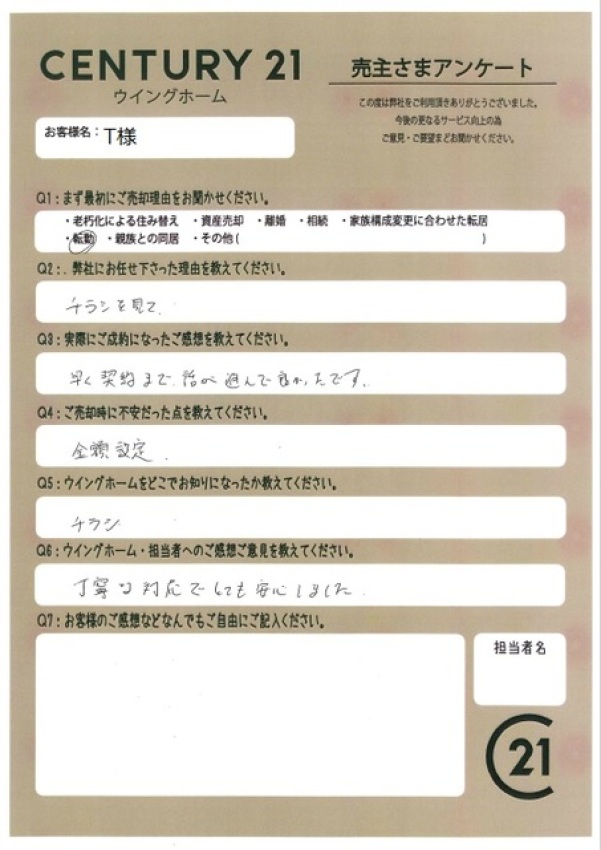 CENTURY 21
ウイングホーム
売主さまアンケート
この度は弊社をご利用頂きありがとうございました。
今後の更なるサービス向上の為
ご意見・ご要望をお聞かせください。
お客様名：T様
Q1：まず最初にご売却理由をお聞かせください。
・老朽化による住み替え ・資産売却 ・離婚 ・相続 ・家族構成変更に合わせた転居
・転勤 ・親族との同居 ・その他（ ）
Q2：．弊社にお任せ下さった理由を教えてください。
チラシを見て．
Q3：実際にご成約になったご感想を教えてください。
早く契約まで、話が進んで良かったです．
Q4：ご売却時に不安だった点を教えてください。
金額設定．
Q5：ウイングホームをどこでお知りになったか教えてください。
チラシ
Q6：ウイングホーム・担当者へのご感想ご意見を教えてください。
丁寧な対応でとても安心しました．
Q7：お客様のご感想などなんでもご自由にご記入ください。
担当者名
C21